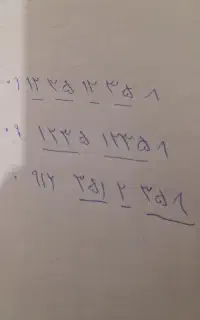 ۰۹ ۱۲ ۳۵ ۱۲ ۳۵ ۸
۰۹ ۱۲۳۵ ۱۲۳۵ ۸
۰۹۱۲ ۳۵۱ ۲ ۳۵۸